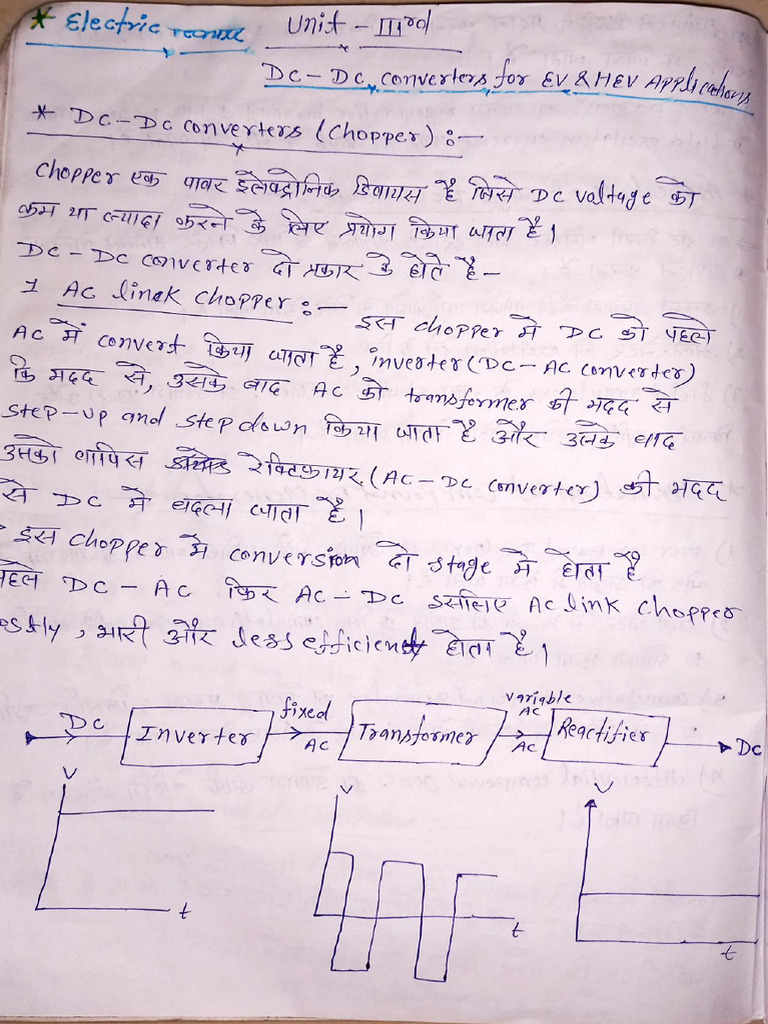 * Electric Unit - IIIrd
DC-DC converters for EV & HEV Applications
* DC-DC converters (Chopper) :-
Chopper एक पावर इलेक्ट्रोनिक डिवायस है जिसे DC voltage को
कम या ज्यादा करने के लिए प्रयोग किया जाता है।
DC-DC converter दो प्रकार के होते है-
1 AC link chopper :- इस chopper में DC को पहले
AC में convert किया जाता है, inverter (DC-AC converter)
कि मदद से, उसके बाद AC को transformer की मदद से
step-up and step down किया जाता है और उसके बाद
उसको वापिस रेक्टिफायर (AC-DC converter) की मदद
से DC में बदला जाता है।
इस chopper में conversion दो stage में होता है
पहले DC-AC फिर AC-DC इसलिए AC link chopper
ostly, भारी और less efficient होता है।
DC Inverter fixed AC Transformer variable AC AC Reactifier DC
V V V
t t t